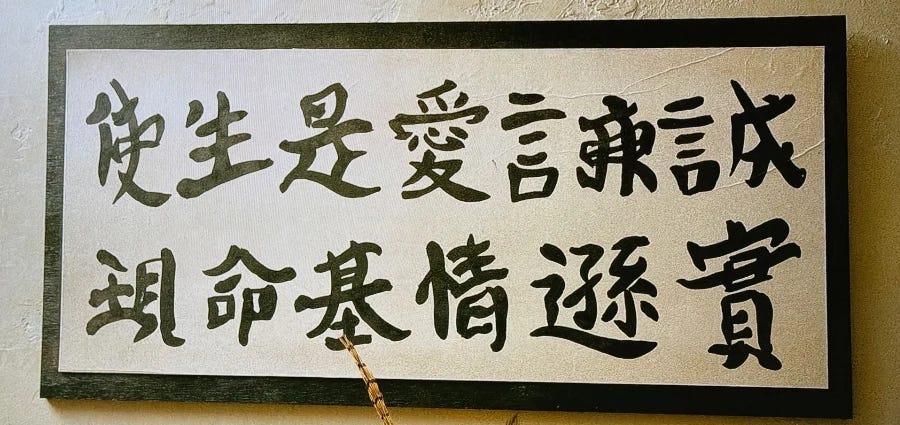 誠實
謙遜
愛情
是基
生命
使現